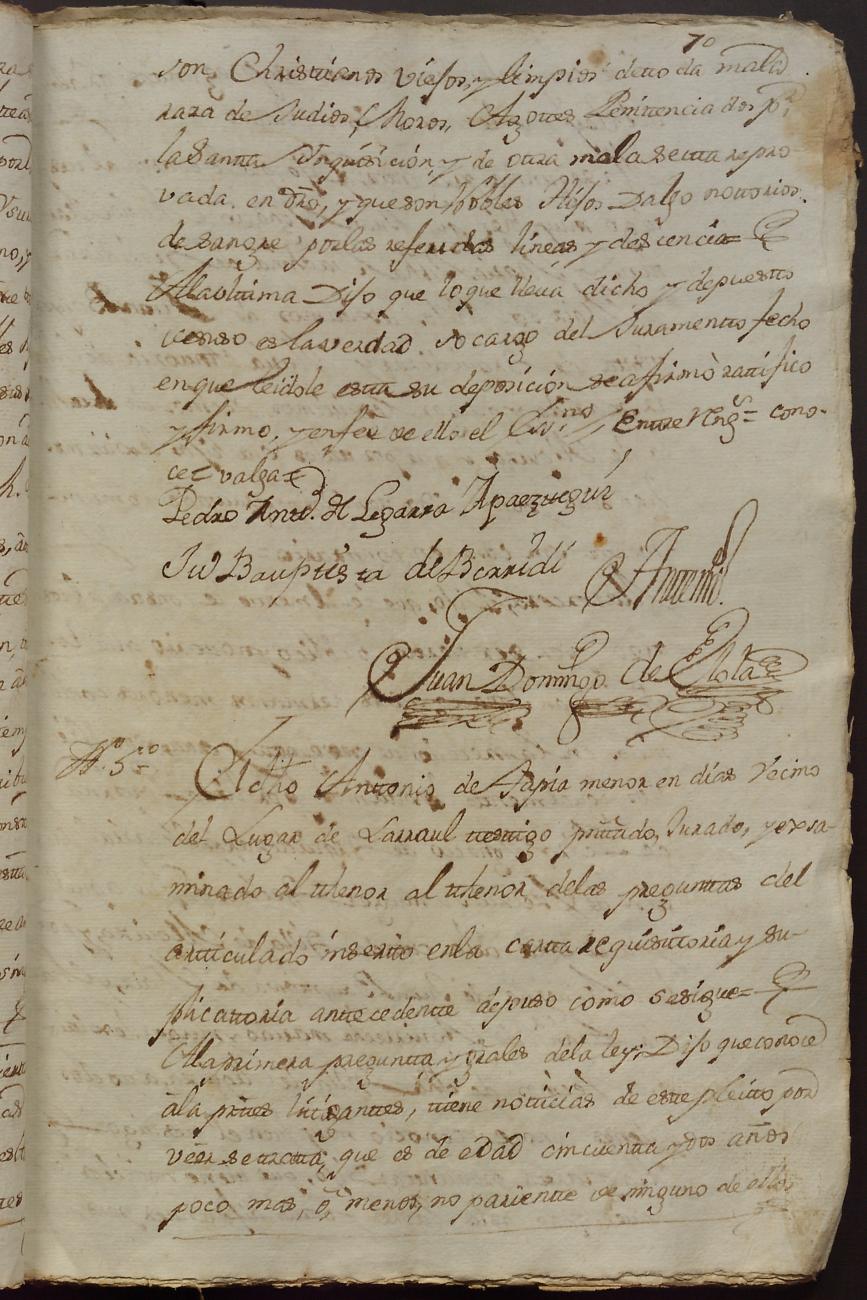 70
son, Christianos viejos, y limpios de toda mala
raza de Judios, Moros, Agottes Penitenciados pr.
la Santta Ynquisicion, y de otra mala setta repro-
vada en dro, y que son Nobles Hijos Dalgo nottorios
de sangre por las referidas lineas y descencia=
Ala ultima Dijo que lo que lleva dicho y depuesto
es la verdad so cargo del Juramento fecho
en que leidole esta su deposicion se afirmò rattifico
y firmo, y en fee de ello el Essno, Entre Rengs= cono-
ce= valga=
Pedro Antto. de Legarra Apaeztegui
Ju Bauptista de Berridi Antemi.
Juan Domingo de Elola
tto. 5to
El dho Anttonio de Tapia menor en dias Vecino
del Lugar de Larraul testtigo prttado, Jurado, y exsa-
minado al thenor al thenor delas pregunttas del
artticulado inserto en la cartta requisittoria y su-
plicattoria anttecedentte depuso como se sigue=
Ala primera preguntta y grâles dela ley: Dijo que conoce
âla prttes littiganttes, ttiene notticias de este pleitto por
veer se tratta, que es de edad cincuentta y dos años
poco mas, ô, menos, no parientte de ninguno de ellos